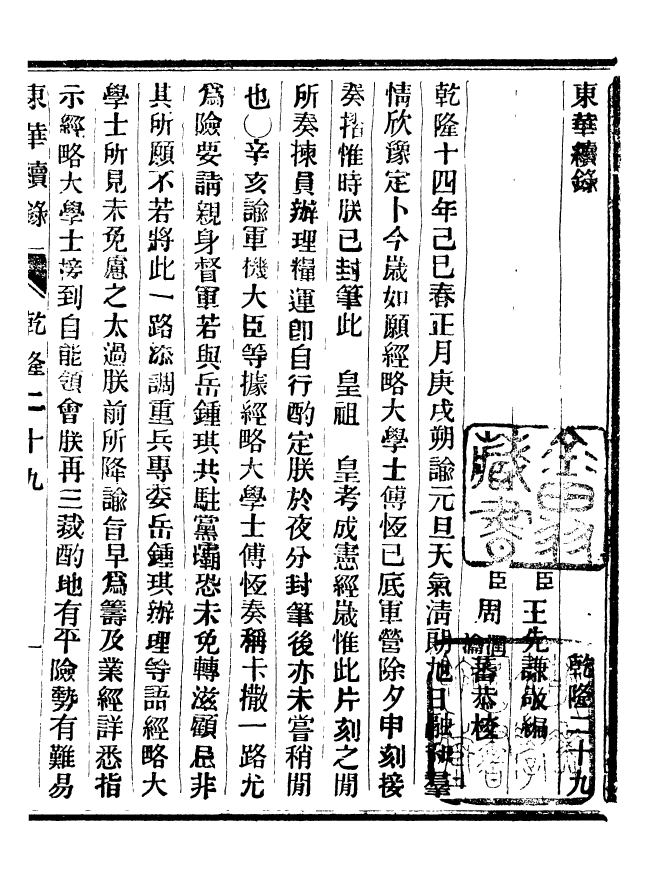 東華續錄　乾隆二十九
臣王先謙敬編
臣周潤蕃恭校
乾隆十四年己巳春正月庚戌朔諭元旦天氣清朗旭日融和羣
情欣豫定卜今歲如願經略大學士傅恆已底軍營除夕申刻接
奏摺惟時朕已封筆此　皇祖　皇考成憲經歲惟此片刻之閒
所奏揀員辦理糧運卽自行酌定朕於夜分封筆後亦未嘗稍閒
也○辛亥諭軍機大臣等據經略大學士傅恆奏稱卡撒一路尤
爲險要請親身督軍若與岳鍾琪共駐黨壩恐未免轉滋顧忌非
其所願不若將此一路添調重兵專委岳鍾琪辦理等語經略大
學士所見未免慮之太過朕前所降諭旨早爲籌及業經詳悉指
示經略大學士接到自能領會朕再三裁酌地有平險勢有難易
東華續錄　乾隆二十九　一
藏書